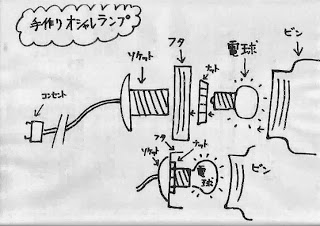 手作りオシャレランプ
フタ
電球
ビン
ソケット
ナット
コンセント
フタ
ソケット
ナット
電球
ビン